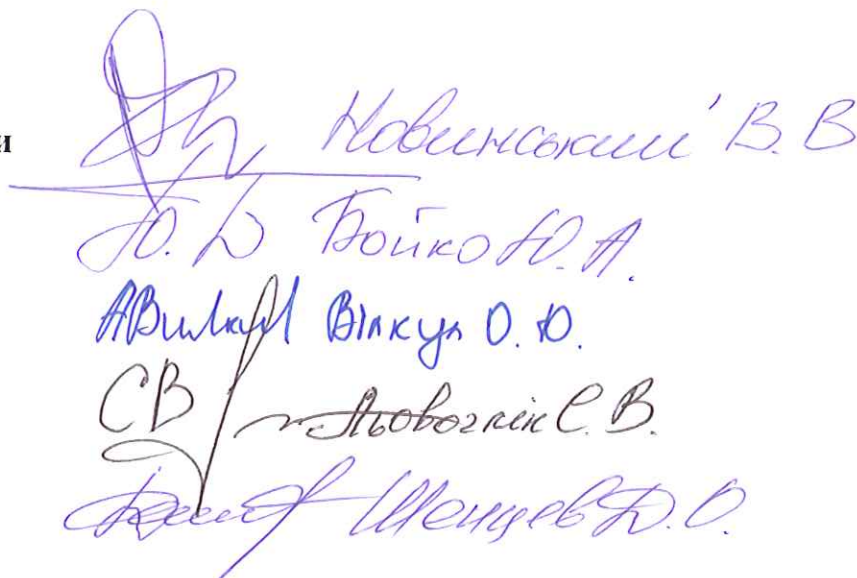 и Новинський В. В
Ю. Б Бойко Ю. А.
АВилкул Вілкул О. Ю.
СВ Льовочкін С. В.
Шенцев Д. О.